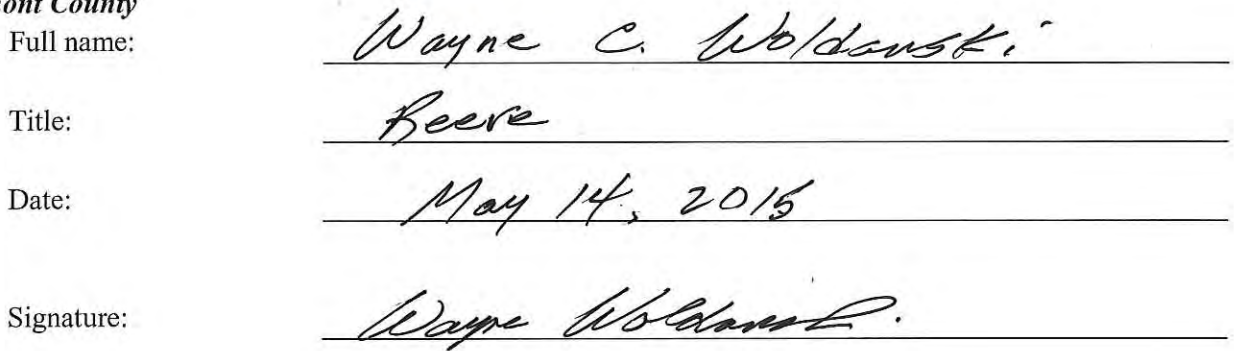 ont County
Full name: Wayne C. Woldanski
Title: Reeve
Date: May 14, 2015
Signature: Wayne Woldanski